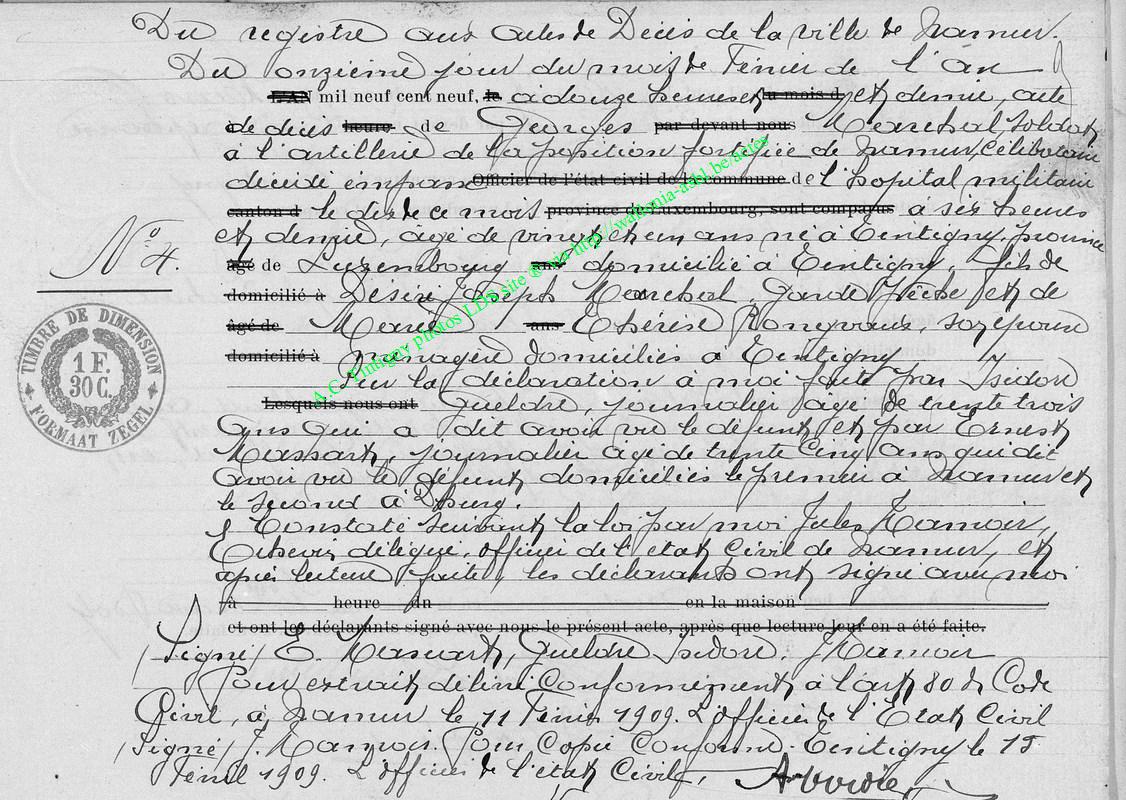 Du registre aux actes de Décès de la ville de Namur.
Du onzième jour du mois de Février de l'an
L'AN mil neuf cent neuf, le à douze heures et du mois d et demie, acte
de décès heure de Georges par devant nous Marechal, soldat
à l'artillerie de la position fortifiée de Namur, célibataire
décédé Officier de l'état civil de la commune de l'hopital militaire
canton d le dix de ce mois province de Luxembourg, sont comparus à six heures
et demie, agé de vingt et un ans né à Tintigny, province
N° 4.
âgé de Luxembourg ans domicilié à Tintigny, fils de
domicilié à Désiré Joseph Marechal, Garde et de
âgé de Marie ans Thérèse Rongvaux, son épouse
domicilié à ménagère domiciliés à Tintigny
TIMBRE DE DIMENSION
1 F.
30 C.
FORMAAT ZEGEL
Sur la déclaration à moi faite par Isidore
Lesquels nous ont Gueldre, journalier âgé de trente trois
ans qui a dit avoir vu le défunt et par Ernest
Massart, journalier âgé de trente cinq ans qui dit
avoir vu le défunt domiciliés le premier à Namur et
le second à
Constaté suivant la loi par moi Jules Hamoir,
Echevin délégué, officier de l'etat Civil de Namur, et
après lecture faite, les déclarants ont signé avec moi
à heure du en la maison
et ont les déclarants signé avec nous le présent acte, après que lecture leur en a été faite.
(Signé) E. Massart, Gueldre Isidore. J Hamoir
Pour extrait délivré Conformément à l'art 80 du Code
Civil, à Namur le 11 Février 1909. L'officier de l'Etat Civil
(Signé) J. Hamoir. Pour Copie Conforme. Tintigny le 15
Février 1909. L'officier de l'état Civil,
A.C. Tintigny photos LDS site ® via http://wallonia-aabl.be/actes